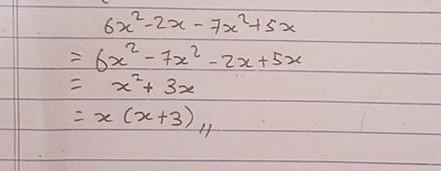 6x²-2x-7x²+5x
= 6x²-7x²-2x+5x
= x²+3x
= x(x+3)〃